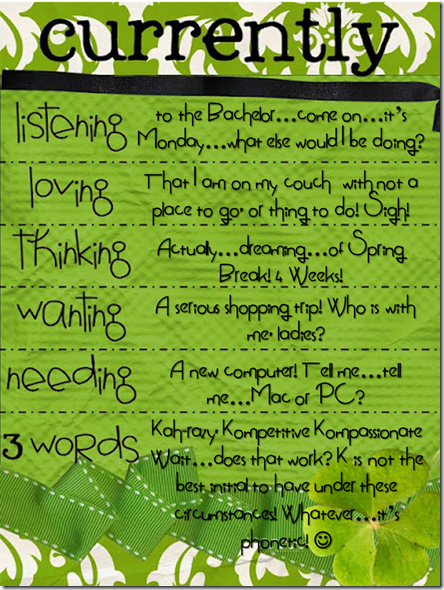 currently
listening
to the Bachelor...come on...it's
Monday...what else would I be doing?
loving
That I am on my couch with not a
place to go, or thing to do! Sigh!
thinking
Actually...dreaming...of Spring
Break! 4 Weeks!
wanting
A serious shopping trip! Who is with
me, ladies?
needing
A new computer! Tell me...tell
me...Mac or PC?
3 words
Kah-razy, Kompetitive, Kompassionate
Wait...does that work? K is not the
best initial to have under these
circumstances! Whatever...it's
phonetic! ☺